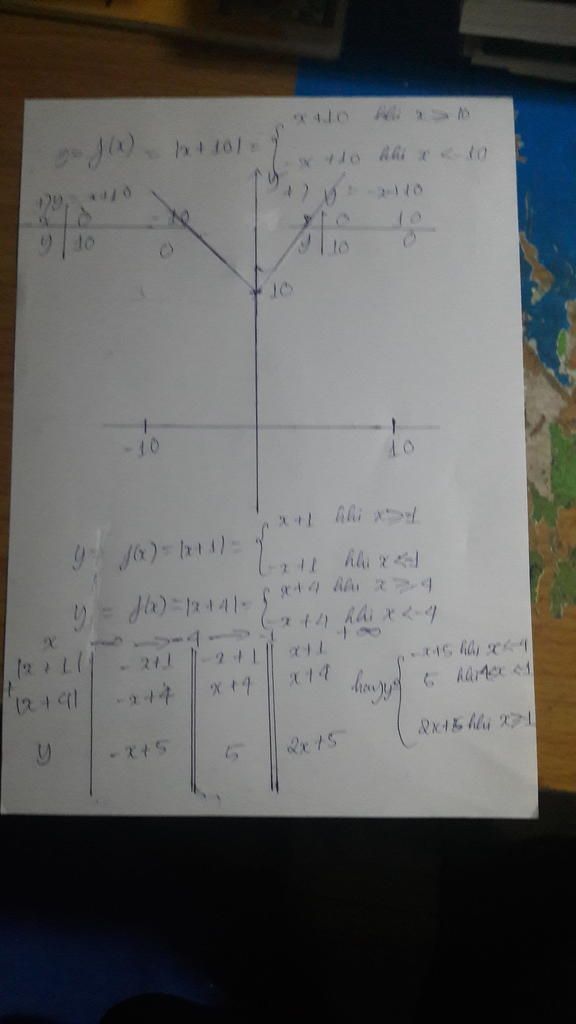 y = f(x) = |x+10| = { x+10 khi x ≥ 10
-x+10 khi x < -10
+) y = x+10
x | 0 -10
y | 10 0
y
+) y = -x+10
x | 0 10
y | 10 0
10
-10 10
y = f(x) = |x+1| = { x+1 khi x ≥ -1
-x+1 khi x < -1
y = f(x) = |x+4| = { x+4 khi x ≥ -4
-x+4 khi x < -4
x -4 -1 +∞
|x+1| -x+1 -x+1 x+1
+
|x+4| -x+4 x+4 x+4
y -x+5 5 2x+5
hay y = { -x+5 khi x < -4
5 khi
2x+5 khi x ≥ 1